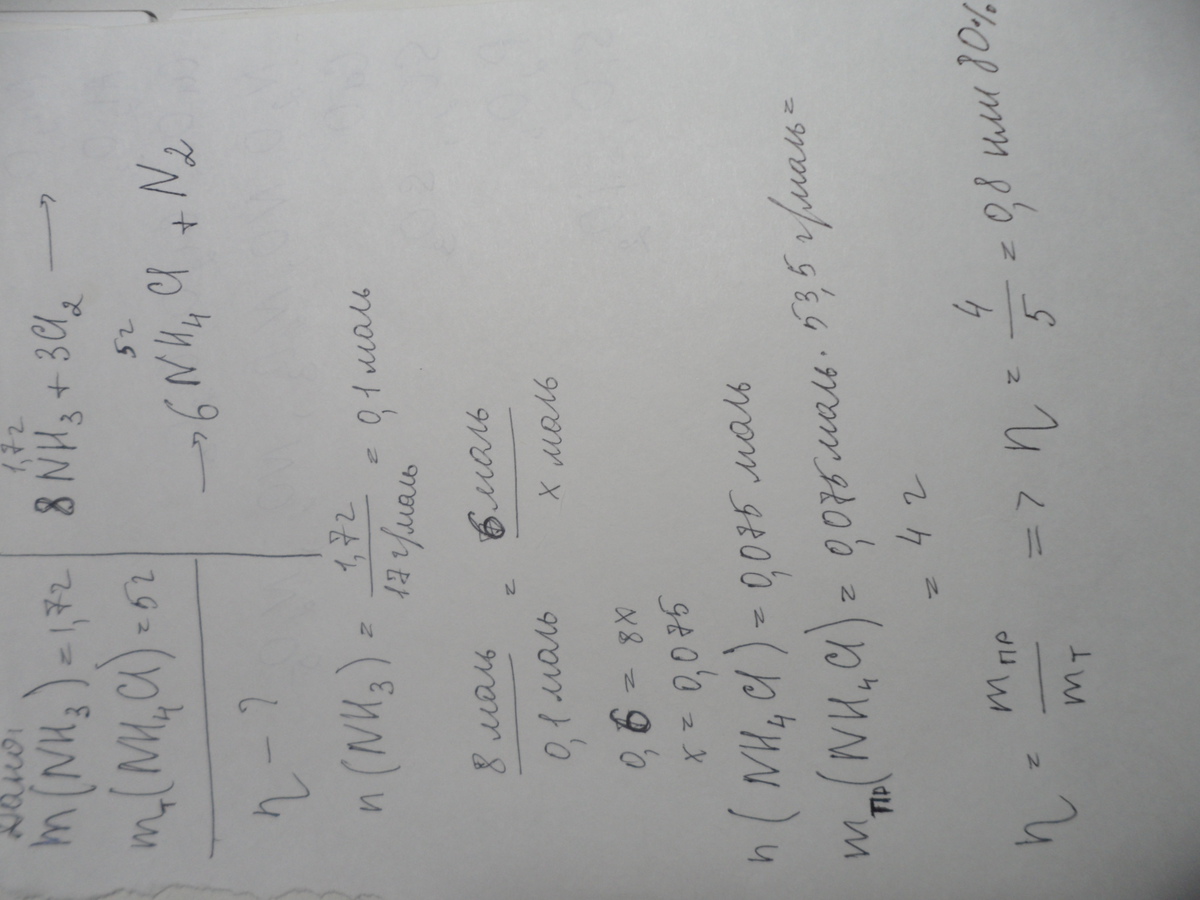 Дано:
m(NH3) = 1,7г
mт(NH4Cl) = 5г
η - ?
1,7г
8NH3 + 3Cl2 →
5г
→ 6NH4Cl + N2
n(NH3) = 1,7г / 17 г/моль = 0,1 моль
8 моль / 0,1 моль = 6 моль / x моль
0,6 = 8x
x = 0,075
n(NH4Cl) = 0,075 моль
mпр(NH4Cl) = 0,075 моль · 53,5 г/моль =
= 4 г
η = mпр / mт => η = 4 / 5 = 0,8 или 80%